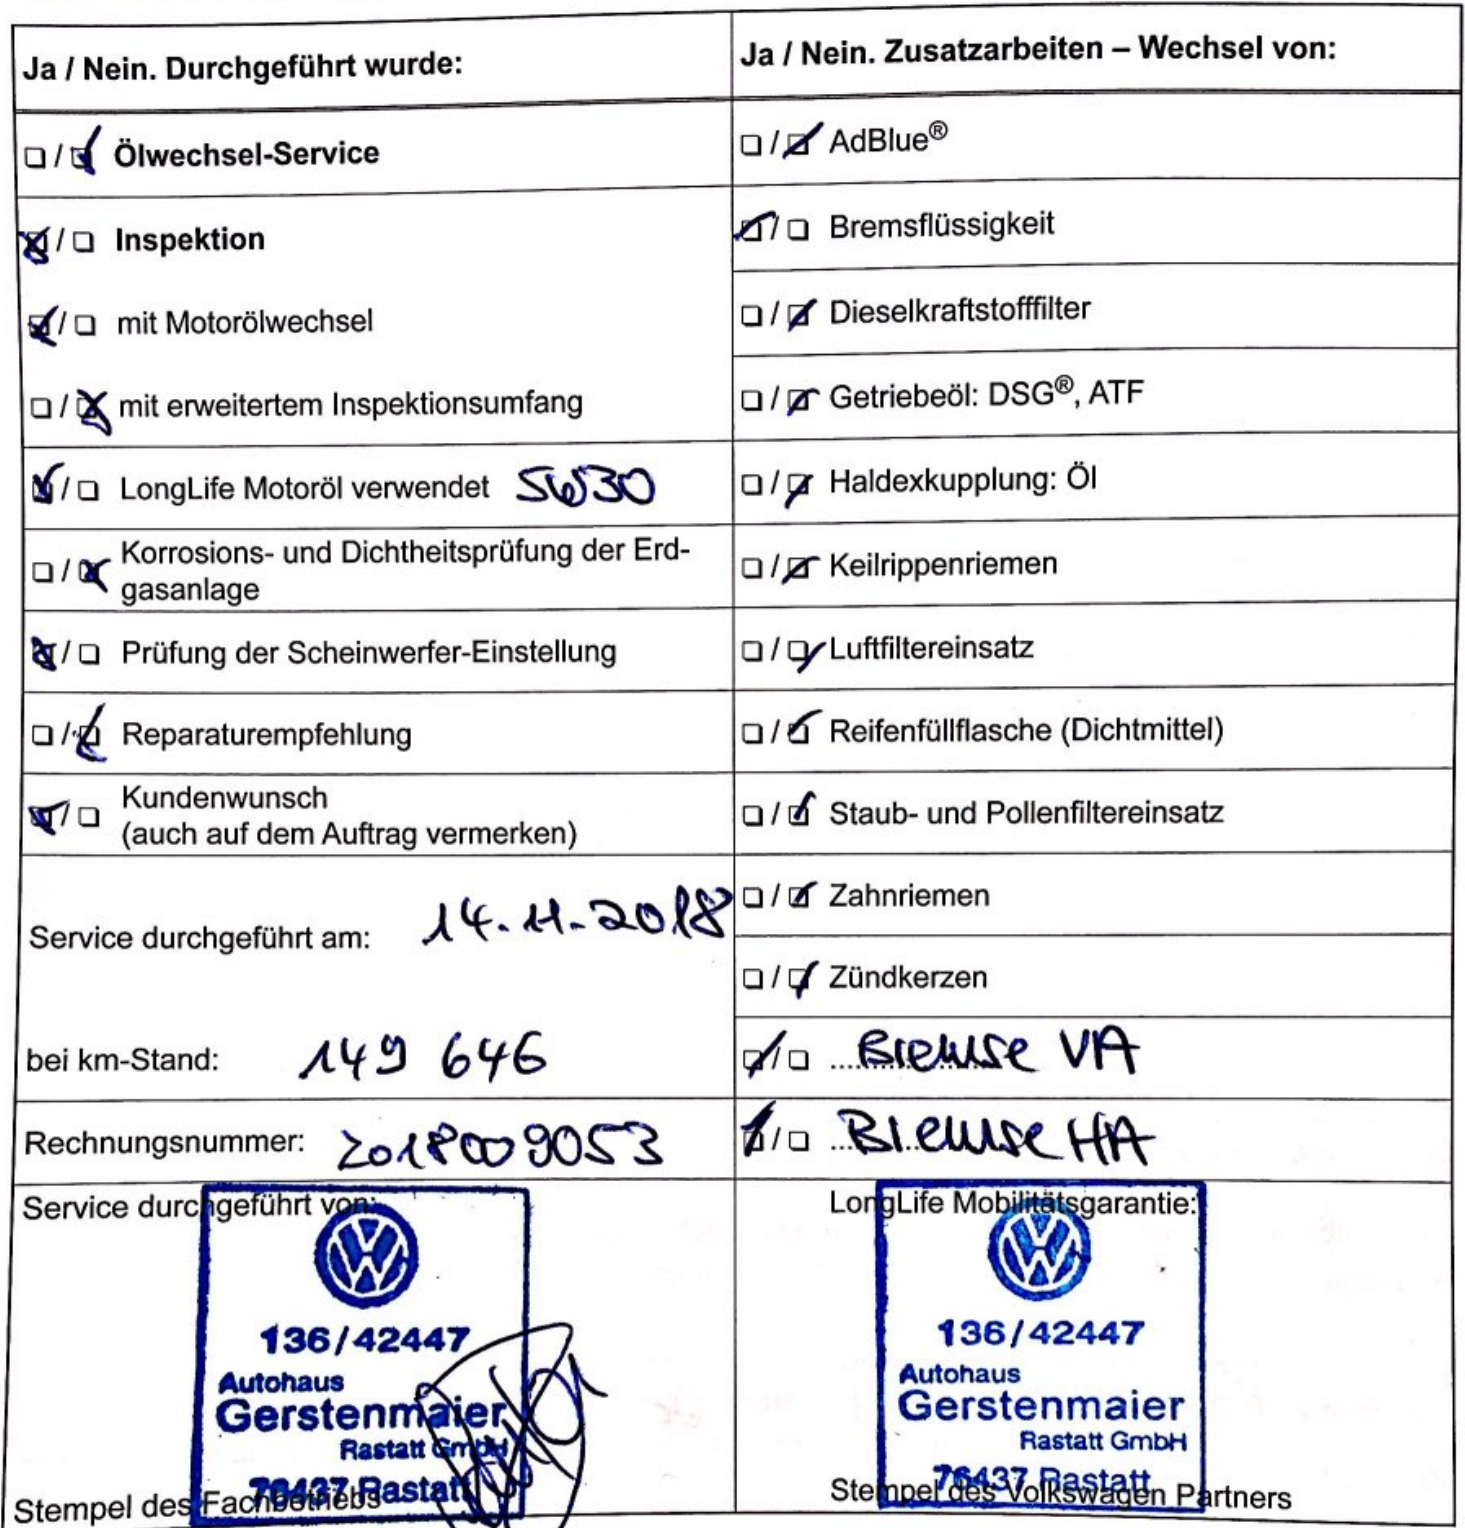 Ja / Nein. Durchgeführt wurde:
☐ / ☑ Ölwechsel-Service
☒ / ☐ Inspektion
☑ / ☐ mit Motorölwechsel
☐ / ☒ mit erweitertem Inspektionsumfang
☑ / ☐ LongLife Motoröl verwendet 5W30
☐ / ☒ Korrosions- und Dichtheitsprüfung der Erd-
gasanlage
☒ / ☐ Prüfung der Scheinwerfer-Einstellung
☐ / ☑ Reparaturempfehlung
☑ / ☐ Kundenwunsch
(auch auf dem Auftrag vermerken)
Service durchgeführt am: 14.11.2018
bei km-Stand: 149 646
Rechnungsnummer: 2018009053
Service durchgeführt von:
136/42447
Autohaus
Gerstenmaier
Rastatt GmbH
76437 Rastatt
Stempel des Fachbetriebs
Ja / Nein. Zusatzarbeiten – Wechsel von:
☐ / ☑ AdBlue®
☑ / ☐ Bremsflüssigkeit
☐ / ☑ Dieselkraftstofffilter
☐ / ☑ Getriebeöl: DSG®, ATF
☐ / ☑ Haldexkupplung: Öl
☐ / ☑ Keilrippenriemen
☐ / ☑ Luftfiltereinsatz
☐ / ☑ Reifenfüllflasche (Dichtmittel)
☐ / ☑ Staub- und Pollenfiltereinsatz
☐ / ☑ Zahnriemen
☐ / ☑ Zündkerzen
☑ / ☐ Bremse VA
☑ / ☐ Bremse HA
LongLife Mobilitätsgarantie:
136/42447
Autohaus
Gerstenmaier
Rastatt GmbH
76437 Rastatt
Stempel des Volkswagen Partners